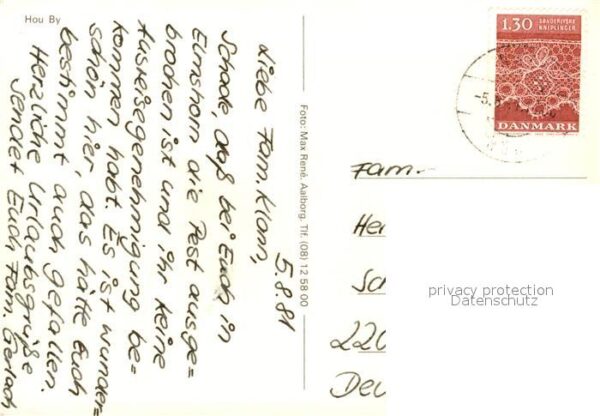 Hou By
5.8.81
Liebe Fam. Klom,
Schade, daß bei Euch in
Elmshorn die Pest ausge=
brochen ist und ihr keine
Ausreisegenehmigung be=
kommen habt. Es ist wunder=
schön hier, das hätte Euch
bestimmt auch gefallen.
Herzliche Urlaubsgrüße
sendet Euch Fam. Gerlach
Foto: Max René. Aalborg. Tlf. (08) 12 58 00
1.30 SØNDERJYSKE
KNIPLINGER
DANMARK
Fam.
He
Sc
220
Deu
privacy protection
Datenschutz